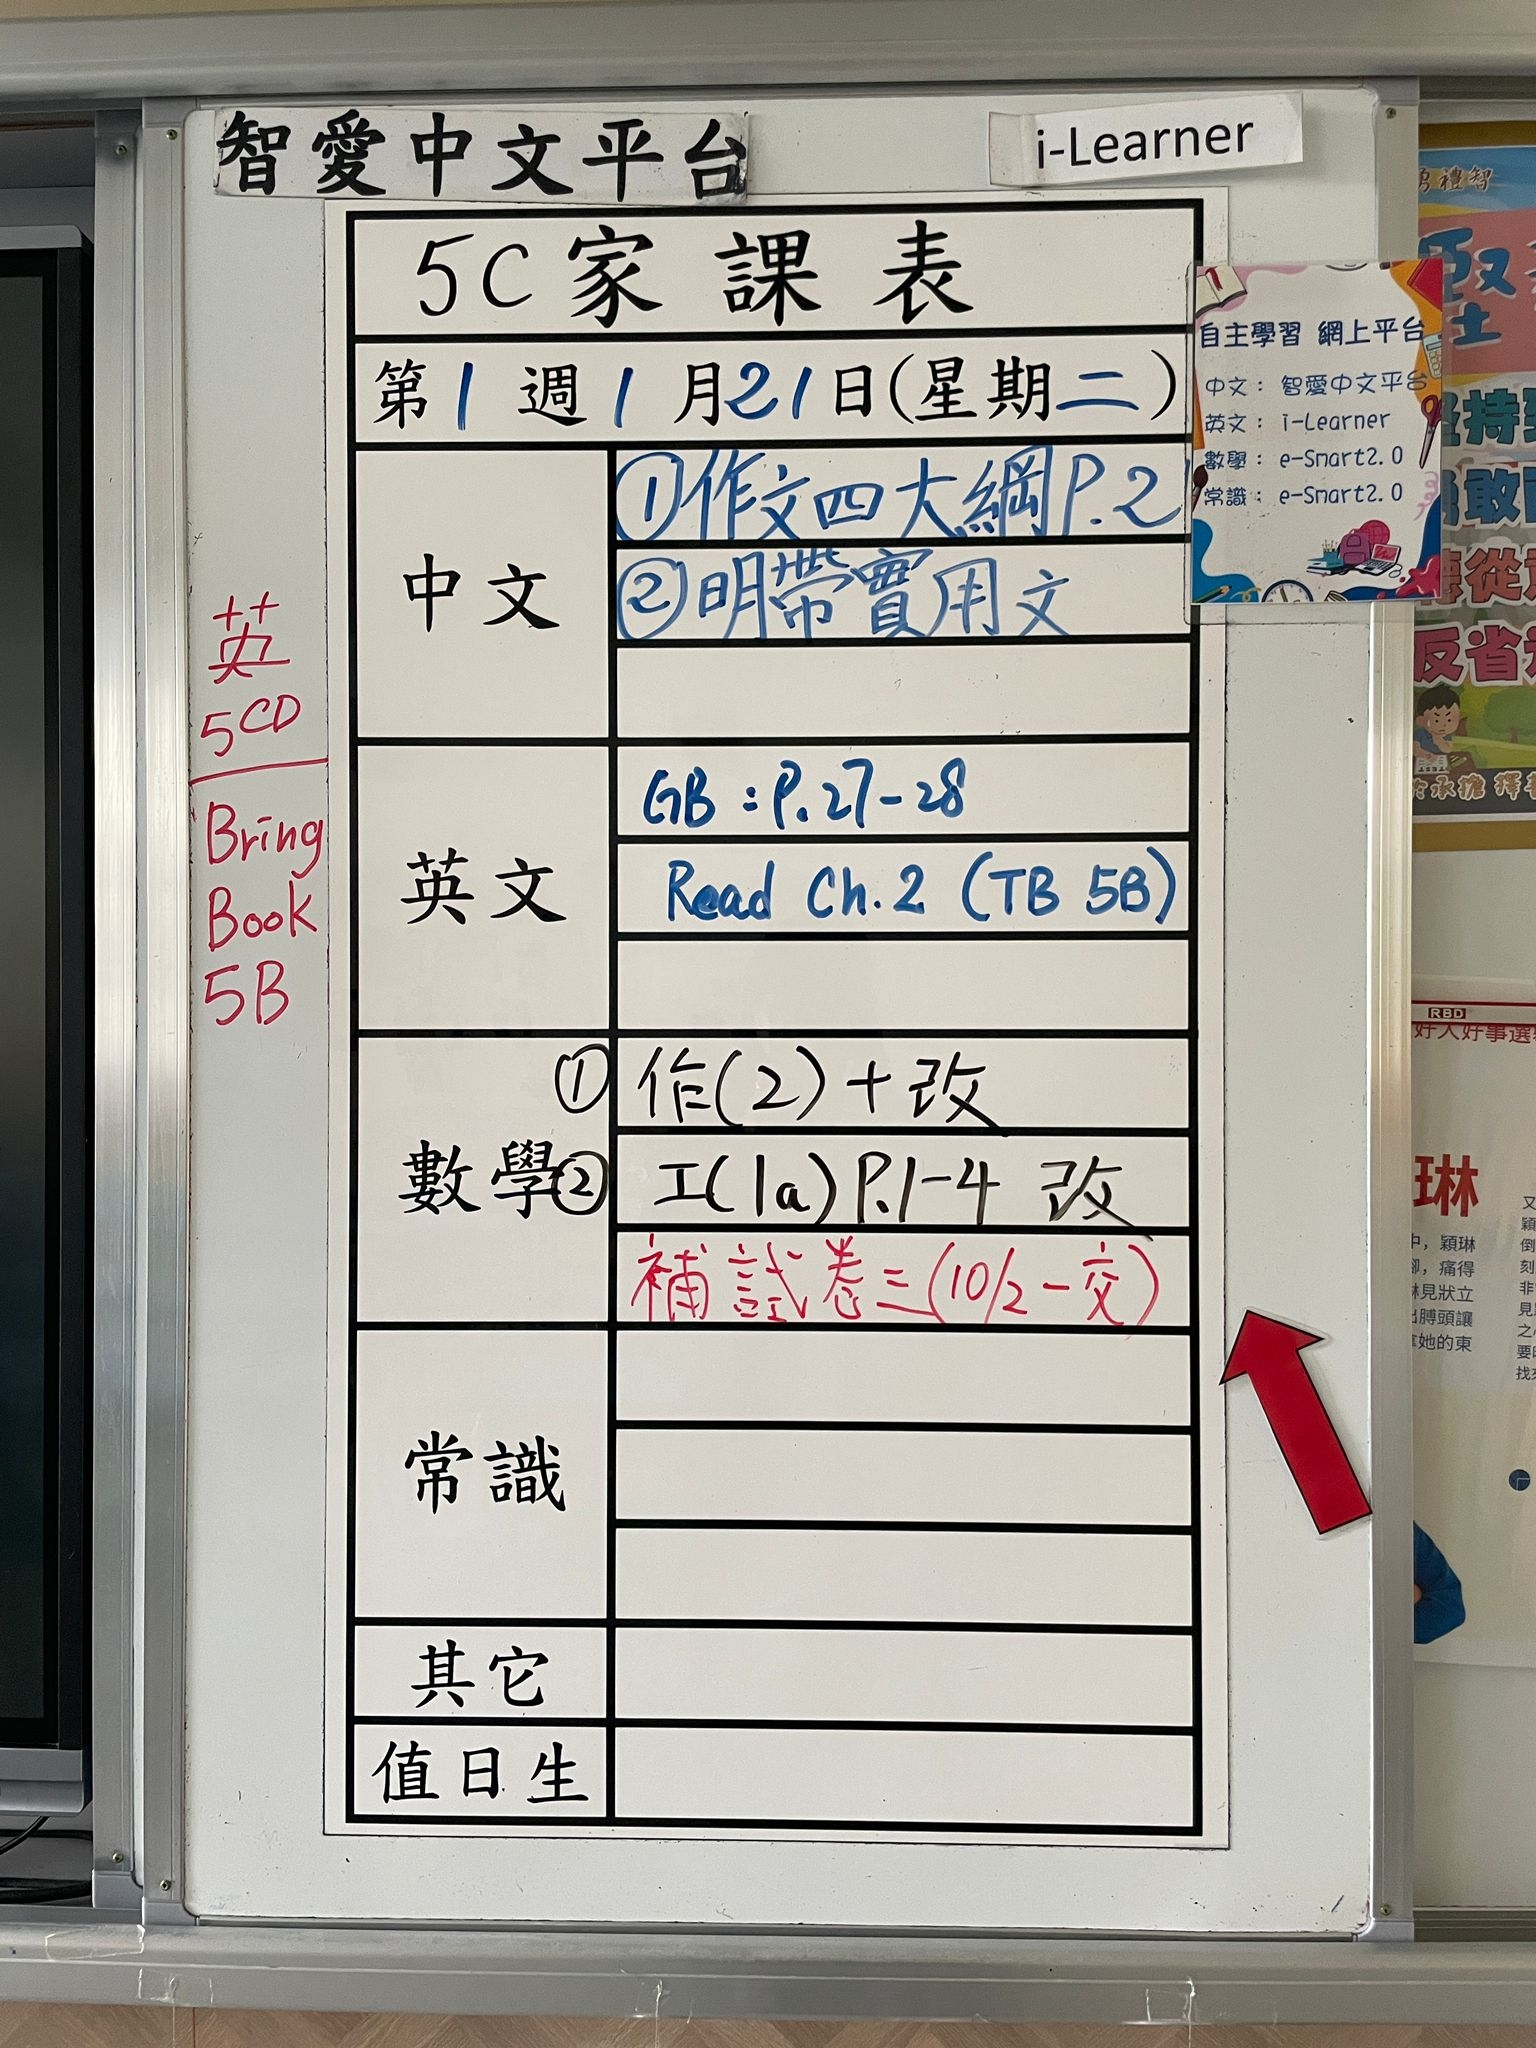 智愛中文平台
i-Learner
5C 家課表
第1週1月21日(星期二)
中文
①作文四大綱P.2
②明帶實用文
英文
GB:P.27-28
Read Ch.2 (TB 5B)
數學
① 作(2)+改
② 工(1a)P.1-4 改
補試卷三(10/2-交)
常識
其它
值日生
英
5CD
Bring
Book
5B
自主學習 網上平台
中文: 智愛中文平台
英文: i-Learner
數學: e-Smart2.0
常識: e-Smart2.0
禮智
堅持
勇敢
反省
承擔
RBD
好人好事選
琳
中,穎琳
腳,痛得
琳見狀立
出膊頭讓
拿她的東